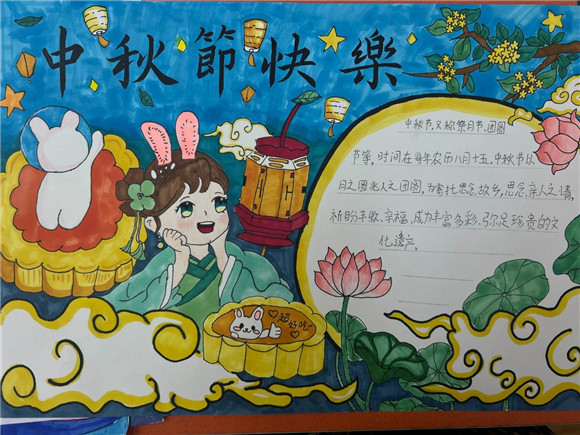 中秋節快樂
中秋节又称祭月节、团圆
节等，时间在每年农历八月十五，中秋节以
月之圆兆人之团圆，为寄托思念故乡，思念亲人之情，
祈盼丰收、幸福，成为丰富多彩、弥足珍贵的文
化遗产。
超好吃~